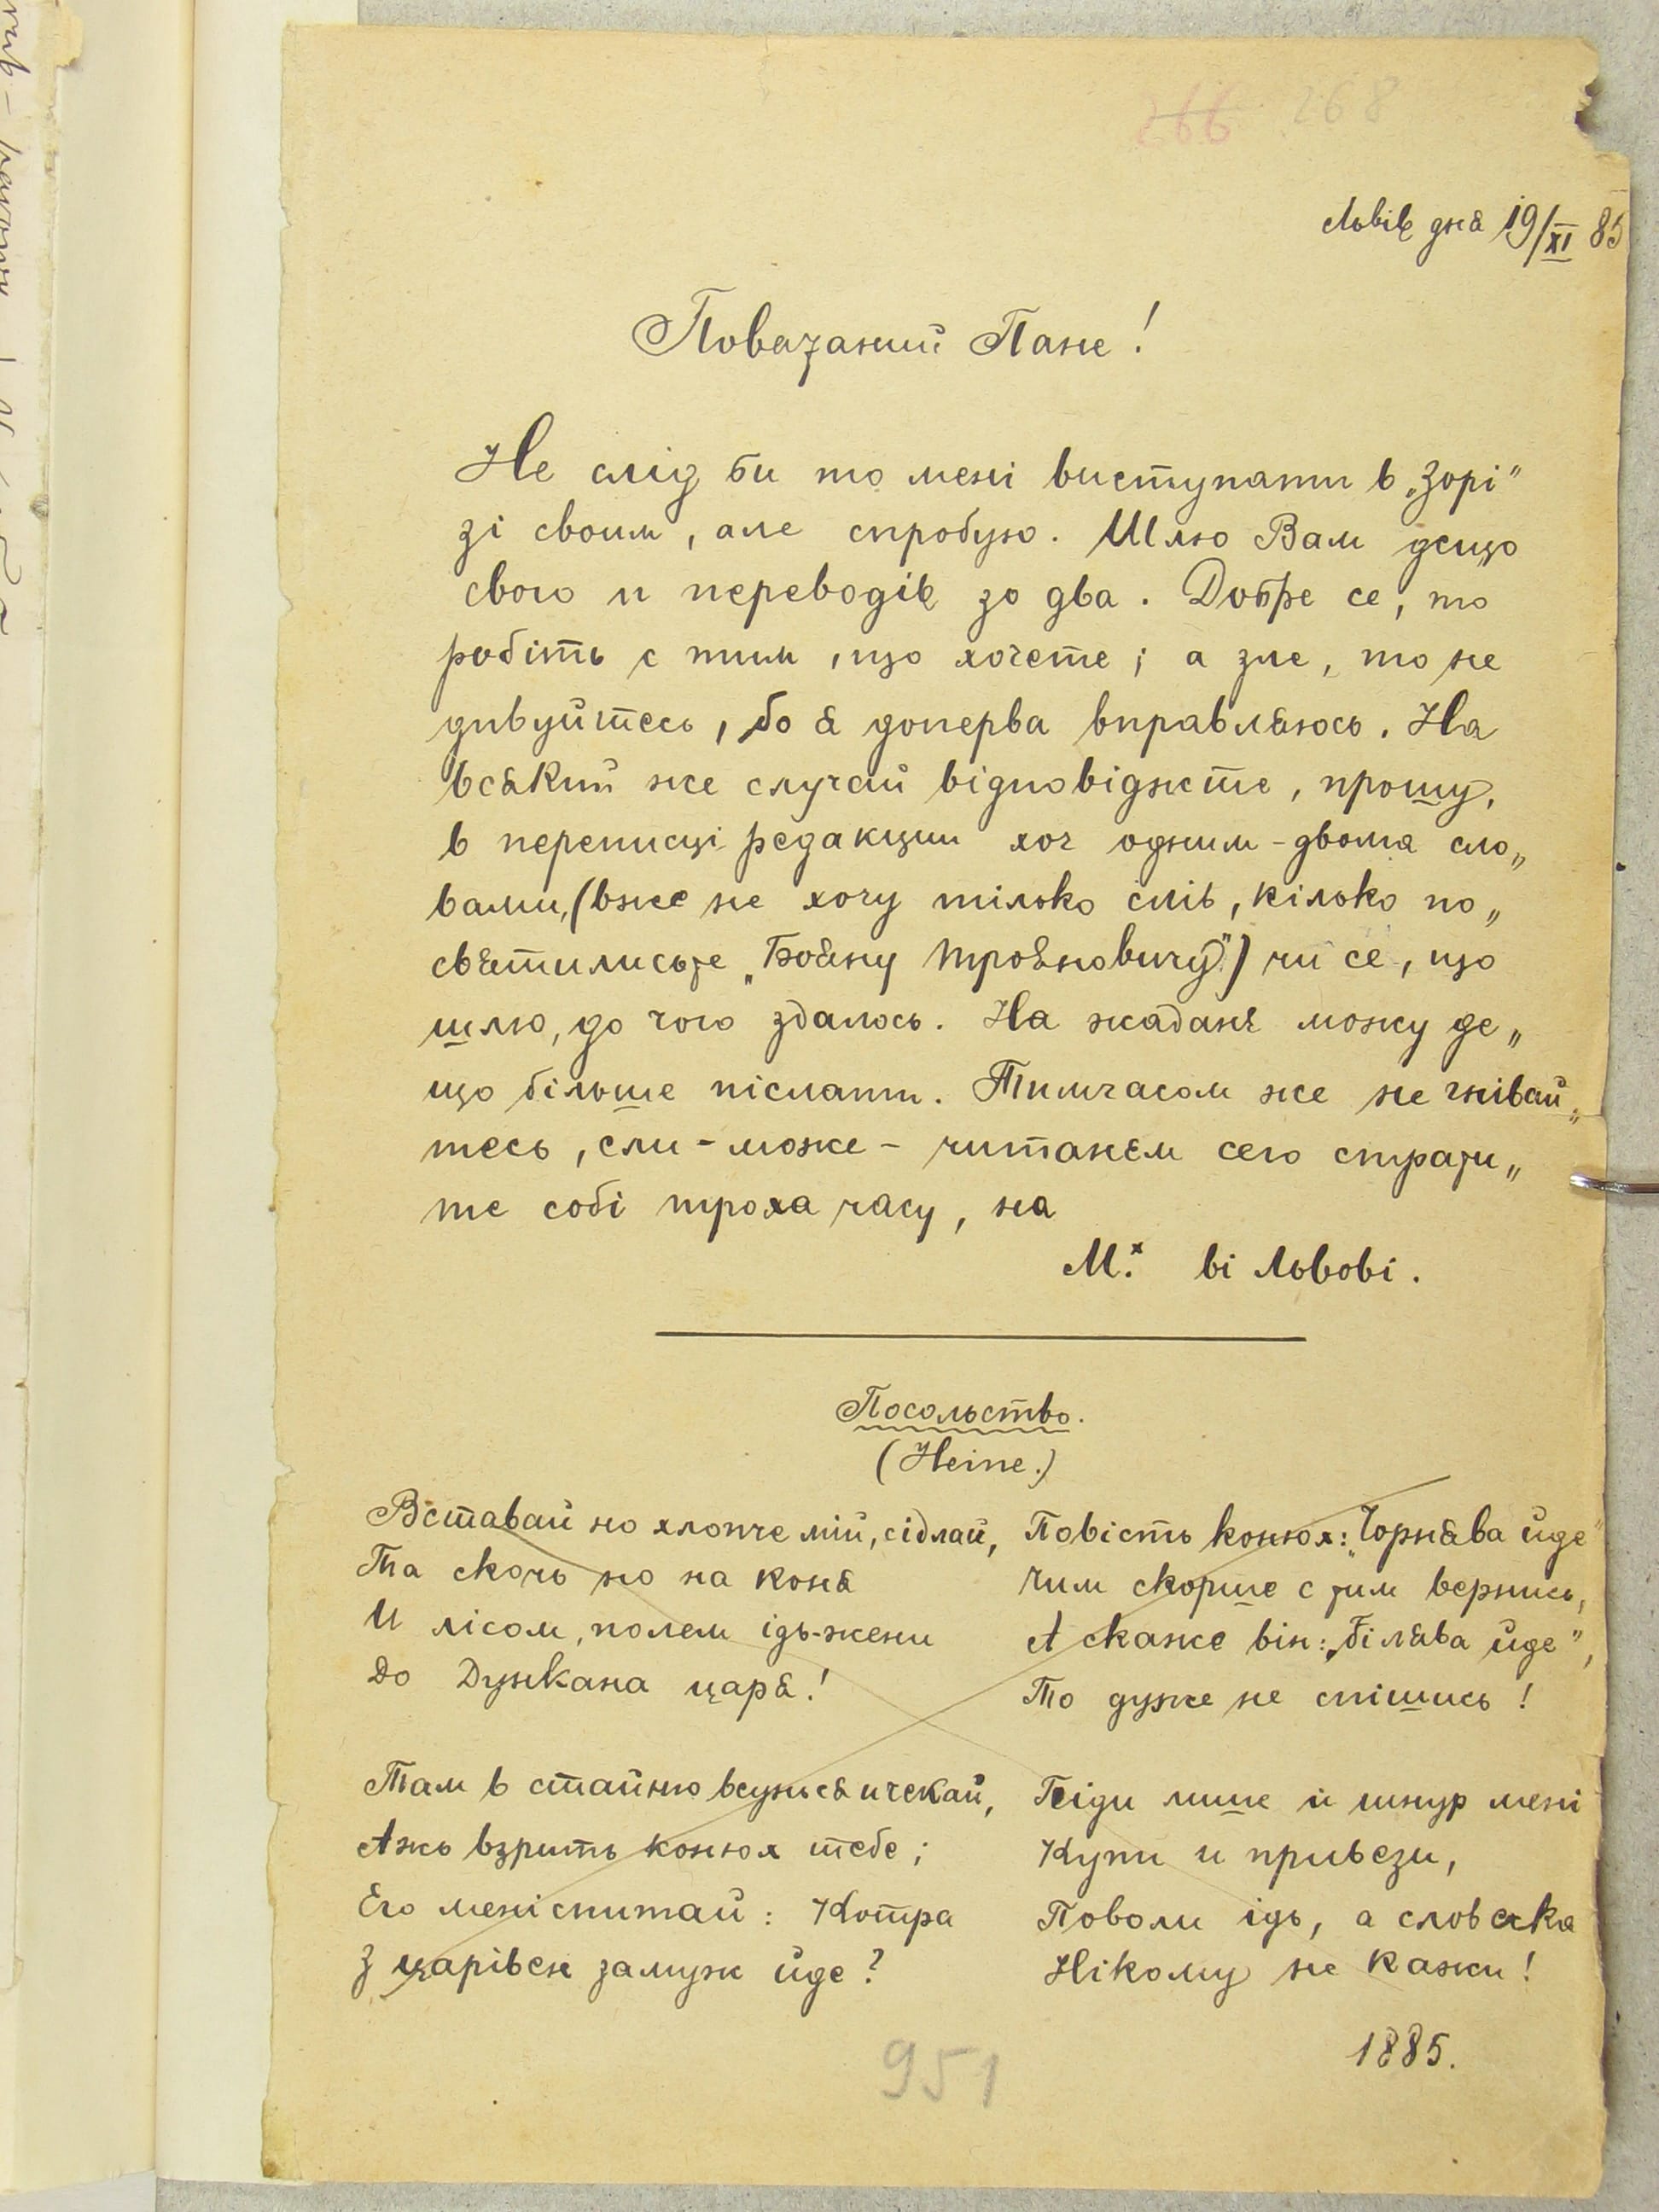 266 268
Львів дня 19/XI 85
Поважаний Пане!
Не слід би то мені виступати в „Зорі"
зі своим, але спробую. Шлю Вам дещо
свого и переводів зо два. Добре се, то
робіть с тим, що хочете; а зле, то не
дивуйтесь, бо я доперва вправляюсь. На
всякий же случай відповіджте, прошу,
в переписці редакциї хоч одним-двома сло„
вами, (вже не хочу тілько слів, кілько по„
святилисьте „Бояну Трояновичу") чи се, що
шлю, до чого здалось. На жаданє можу де„
що більше післати. Тимчасом же не гнівай„
тесь, сли - може - читанєм сего страти„
те собі троха часу, на
М.ˣ ві Львові.
Посольство.
(Heine.)
Вставай но хлопче мій, сідлай,
Та скочь но на коня
И лісом, полем ідь-жени
До Дункана царя!
Там в стайню всунься и чекай,
Ажь взрить конюх тебе;
Его мені спитай: Котра
З царівен замуж йде?
Повість конюх: „Чорнява йде"
Чим скорше с тим вернись,
А скаже він: „Білява йде",
То дуже не спішись!
Піди лише й шнур мені
Купи и привези,
Поволи ідь, а словечка
Нікому не кажи!
1885.
951